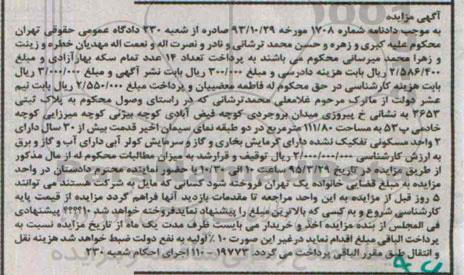 آگهی مزایده
به موجب دادنامه شماره ۱۷۰۸ مورخه ۹۳/۱۰/۲۹ صادره از شعبه ۲۳۰ دادگاه عمومی حقوقی تهران
محکوم علیه کبری و زهره و حسن محمد ترشانی و نادر و نصرت اله و نعمت اله مهدیان خطره و زینت
و زهرا محمد میرسانی محکوم می باشند به پرداخت تعداد عدد تمام سکه بهار آزادی و مبلغ
۲/۵۸۶/۴۰۰ ریال بابت هزینه دادرسی و مبلغ ۳۰۰/۰۰۰ ریال بابت نشر آگهی و مبلغ ۳/۰۰۰/۰۰۰ ریال
بابت هزینه کارشناسی در حق محکوم له فاطمه مغضبیان و پرداخت مبلغ ۲/۵۵۰/۰۰۰ ریال بابت نیم
عشر دولت از ماترک مرحوم غلامعلی محمدترشانی که در راستای وصول محکوم به پلاک ثبتی
۲۶۵۳ به نشانی خ پیروزی میدان بروجردی کوچه فیض آبادی کوچه بیژنی کوچه میرزایی کوچه
خادمی پ ۵۳ به مساحت ۱۱۱/۸۰ مترمربع در دو طبقه نمای سیمان اخیر قدمت بیش از ۳۰ سال دارای
۲ واحد مسکونی تفکیک نشده دارای گرمایش بخاری و گاز و سرمایش کولر آبی دارای آب و گاز و برق
به ارزش کارشناسی ریال توقیف و قرار شد به میزان مطالبات محکوم له از مال مذکور
از طریق مزایده در تاریخ ۹۵/۳/۲۹ ساعت ۱۰ الی ۱۰/۳۰ با حضور نماینده محترم دادستان در واحد
مزایده به مبلغ قضایی خانواده یک تهران فروخته شود کسانی که مایل به شرکت هستند می توانند
۵ روز قبل از مزایده به این واحد مراجعه تا مقدمات بازدید آنها فراهم گردد مزایده از قیمت پایه
کارشناسی شروع و به کیسی که بالاترین مبلغ را پیشنهاد نماید فروخته خواهد شد ۱۰٪ پیشنهادی
فی المجلس از بنده مزایده اخذ و خریدار می بایست ظرف مدت یک ماه از تاریخ مزایده نسبت به
پرداخت الباقی مبلغ اقدام نماید در غیر این صورت ۱۰٪ اولیه به نفع دولت ضبط خواهد شد هزینه نقل
و انتقال طبق مقرر الباقی پرداخت می گردد. ۱۹۷۷۳ - ۱۱۰ اجرای احکام شعبه ۲۳۰